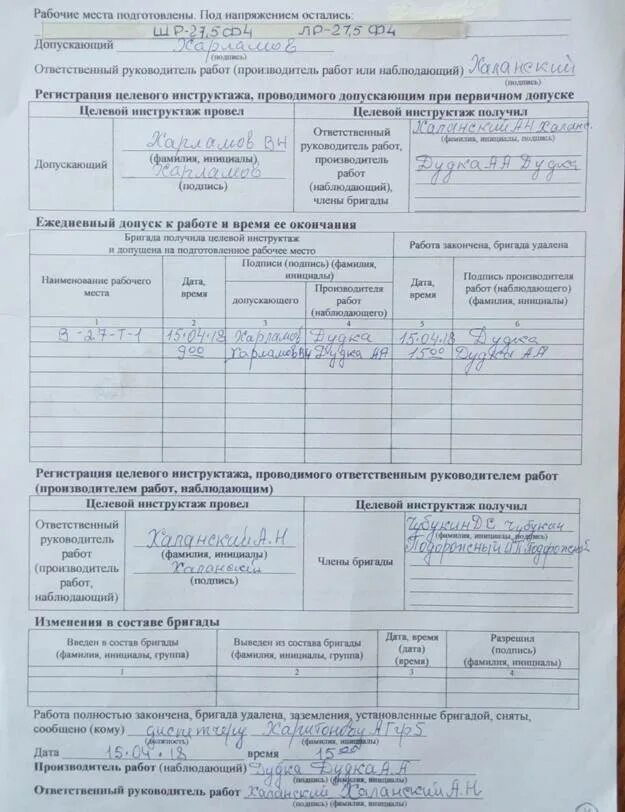 Рабочие места подготовлены. Под напряжением остались:
ШР-27,5 Ф4 ЛР-27,5 Ф4
Допускающий Харламов
(подпись)
Ответственный руководитель работ (производитель работ или наблюдающий) Халанский
(подпись)
Регистрация целевого инструктажа, проводимого допускающим при первичном допуске
Целевой инструктаж провел Целевой инструктаж получил
Допускающий
Харламов ВН
(фамилия, инициалы)
Харламов
(подпись)
Ответственный руководитель работ, производитель работ (наблюдающий), члены бригады
Халанский АН Халанс.
(фамилия, инициалы, подпись)
Дудка АА Дудка
Ежедневный допуск к работе и время ее окончания
Бригада получила целевой инструктаж и допущена на подготовленное рабочее место
Работа закончена, бригада удалена
Наименование рабочего места
Дата, время
Подписи (подпись) (фамилия, инициалы)
допускающего
Производителя работ (наблюдающего)
Дата, время
Подпись производителя работ (наблюдающего) (фамилия, инициалы)
1 2 3 4 5 6
В-27-Т-1 15.04.18 Харламов Дудка 15.04.18 Дудка
9 00 Харламов ВН Дудка АА 15 00 Дудка АА
Регистрация целевого инструктажа, проводимого ответственным руководителем работ
(производителем работ, наблюдающим)
Целевой инструктаж провел Целевой инструктаж получил
Ответственный руководитель работ (производитель работ, наблюдающий)
Халанский А.Н
(фамилия, инициалы)
Халанский
(подпись)
Члены бригады
Чубукин ДС Чубукин
(фамилия, инициалы, подпись)
Подорожный Подорожной
Изменения в составе бригады
Введен в состав бригады (фамилия, инициалы, группа)
Выведен из состава бригады (фамилия, инициалы, группа)
Дата, время (дата) (время)
Разрешил (подпись) (фамилия, инициалы)
1 2 3 4
Работа полностью закончена, бригада удалена, заземления, установленные бригадой, сняты,
сообщено (кому) диспетчеру Харитонову АГ гр5
(должность) (фамилия, инициалы)
Дата 15.04.18 время 15 00
Производитель работ (наблюдающий) Дудка Дудка А.А
(подпись) (фамилия, инициалы)
Ответственный руководитель работ Халанский Халанский А.Н
(подпись) (фамилия, инициалы)